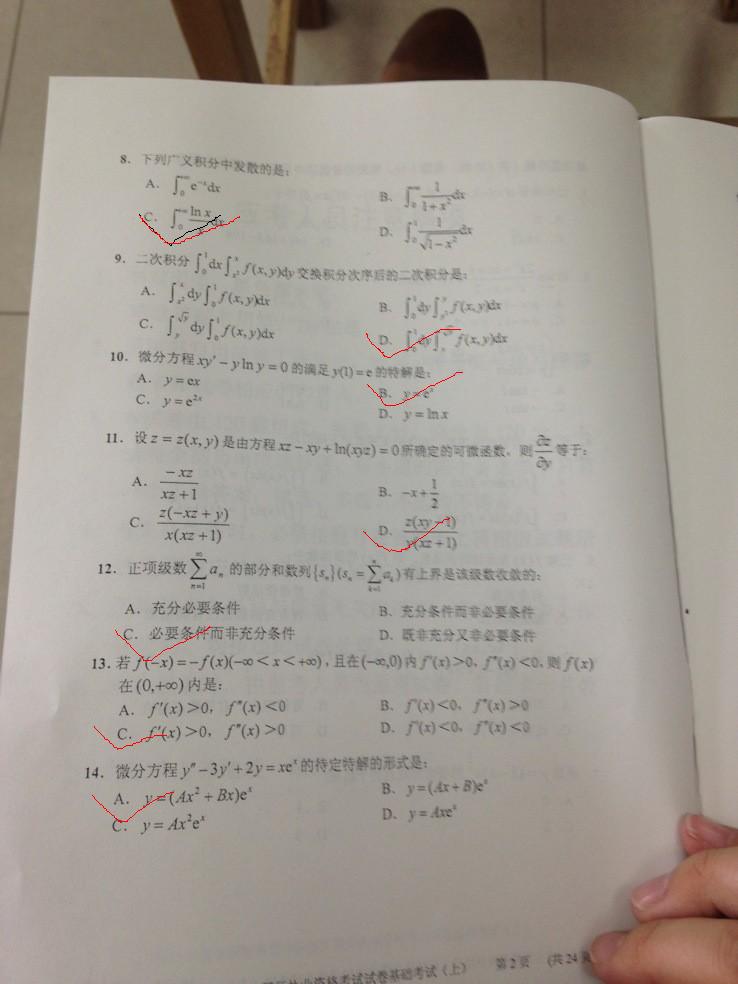 8. 下列广义积分中发散的是:
A. ∫₀^{+∞} e^{-x}dx
B. ∫₀^{+∞} \frac{1}{1+x²}dx
C. ∫₀^{+∞} \frac{ln x}{x}dx
D. ∫₀^{1} \frac{1}{\sqrt{1-x²}}dx
9. 二次积分 ∫₀^{1}dx∫_{x²}^{x} f(x,y)dy 交换积分次序后的二次积分是:
A. ∫_{x²}^{x}dy∫₀^{1} f(x,y)dx
B. ∫₀^{1}dy∫_{y²}^{y} f(x,y)dx
C. ∫_{y}^{\sqrt{y}}dy∫₀^{1} f(x,y)dx
D. ∫₀^{1}dy∫_{y}^{\sqrt{y}} f(x,y)dx
10. 微分方程 xy′−y ln y=0 的满足 y(1)=e 的特解是:
A. y=ex
B. y=e^{x}
C. y=e^{2x}
D. y=ln x
11. 设 z=z(x,y) 是由方程 xz−xy+ln(xyz)=0 所确定的可微函数, 则 \frac{∂z}{∂y} 等于:
A. \frac{−xz}{xz+1}
B. −x+\frac{1}{2}
C. \frac{z(−xz+y)}{x(xz+1)}
D. \frac{z(xy−1)}{y(xz+1)}
12. 正项级数 \sum_{n=1}^{∞} a_n 的部分和数列 {s_n}(s_n=\sum_{k=1}^{n} a_k) 有上界是该级数收敛的:
A. 充分必要条件
B. 充分条件而非必要条件
C. 必要条件而非充分条件
D. 既非充分又非必要条件
13. 若 f(−x)=−f(x)(−∞<x<+∞), 且在(−∞,0)内 f′(x)>0, f″(x)<0, 则 f(x)
在 (0,+∞) 内是:
A. f′(x)>0, f″(x)<0
B. f′(x)<0, f″(x)>0
C. f′(x)>0, f″(x)>0
D. f′(x)<0, f″(x)<0
14. 微分方程 y″−3y′+2y=xe^{x} 的待定特解的形式是:
A. y=(Ax²+Bx)e^{x}
B. y=(Ax+B)e^{x}
C. y=Ax²e^{x}
D. y=Axe^{x}
业资格考试试卷基础考试(上) 第2页 (共24页